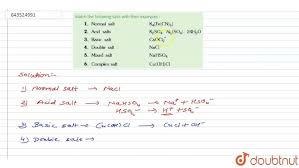 643524991
Match the following salts with their examples :
1. Normal salt K₄[Fe(CN)₆]
2. Acid salt K₂SO₄ · Al₂(SO₄)₃ · 24H₂O
3. Basic salt CaOCl₂
4. Double salt NaCl
5. Mixed salt NaHSO₄
6. Complex salt Cu(OH)Cl
Solution:-
1) Normal salt → NaCl
2) Acid salt → NaHSO₄ → Na⁺ + HSO₄⁻
HSO₄⁻ → H⁺ + SO₄⁻
3) Basic salt → Cu(OH)Cl → CuCl + OH⁻
4) Double salt →
doubtnut